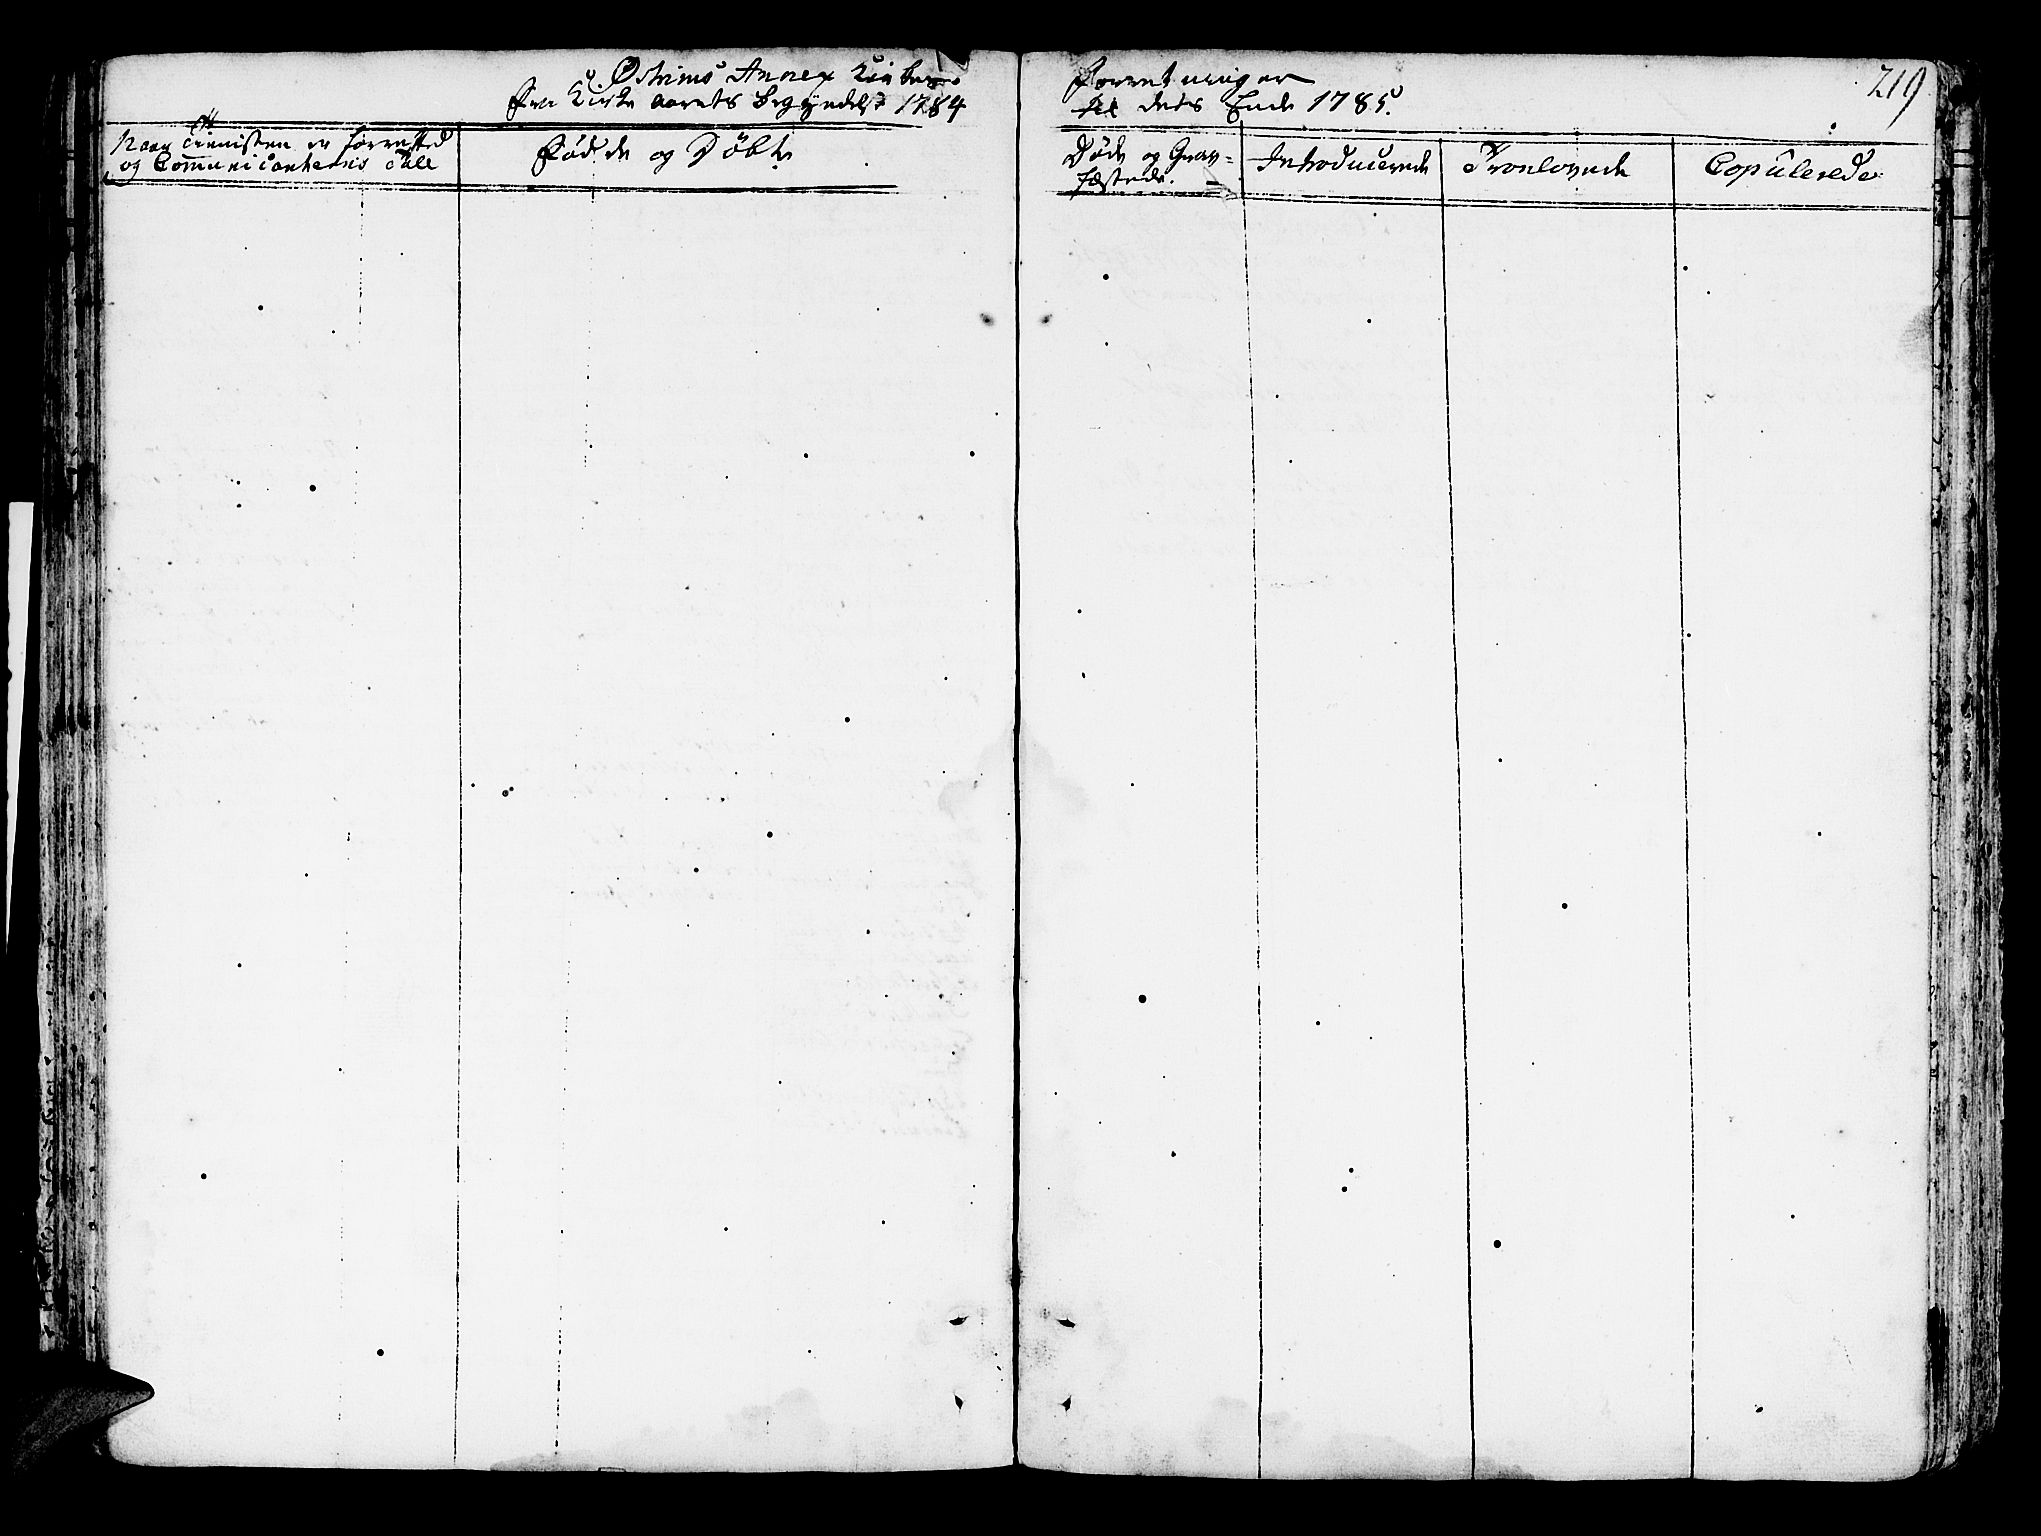 Østrims Annex Kirkes Forretninger
219
Fra Kirke aarets Begyndelse 1784 til dets Ende 1785.
Naar Tienisten er forrætted
og Communicanternis Tall
Fødde og Døbte
Døde og Grav=
fæstede.
Introducerede
Troelovede
Copulerede